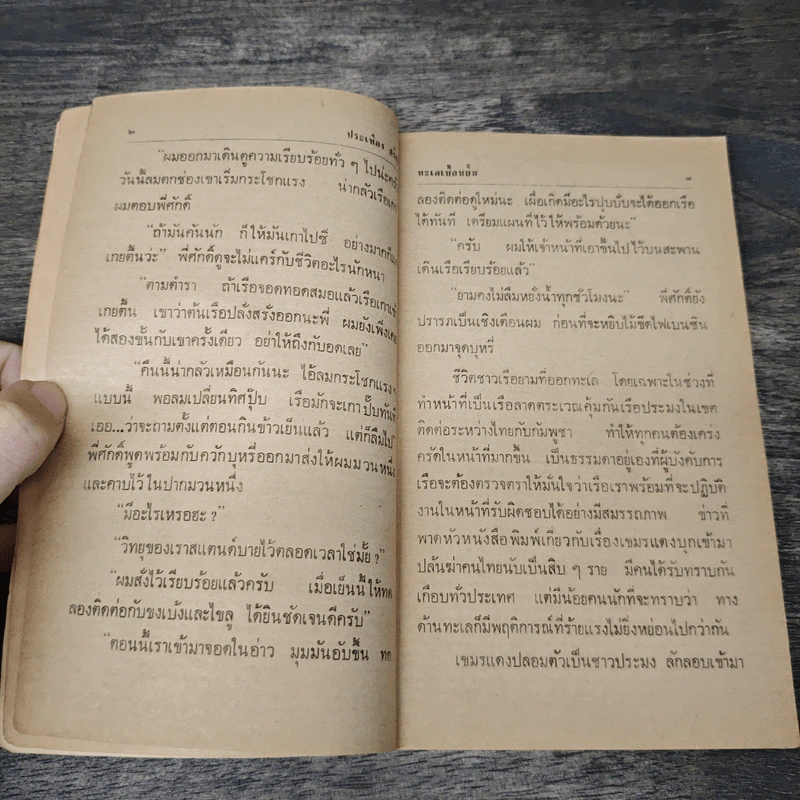 ๒
ประเทือง
“ผมออกมาเดินดูความเรียบร้อยทั่ว ๆ ไปน่ะครับ
วันนี้ลมตกช่องเขาเริ่มกระโชกแรง น่ากลัวเรือ
ผมตอบพี่ศักดิ์
“ถ้ามันคันนัก ก็ให้มันเกาไปซี อย่างมากก็แค่
เกยตื้นว่ะ” พี่ศักดิ์ดูจะไม่แคร์กับชีวิตอะไรนักหนา
“ตามตำรา ถ้าเรือจอดทอดสมอแล้วเรือเกาเข้า
เกยตื้น เขาว่าต้นเรือปลั่งสรั่งออกนะพี่ ผมยังเพิ่ง
ได้สองขั้นกับเขาครั้งเดียว อย่าให้ถึงกับอดเลย”
“คืนนี้น่ากลัวเหมือนกันนะ ไอ้ลมกระโชกแรง ๆ
แบบนี้ พอลมเปลี่ยนทิศปุ๊บ เรือมักจะเกาปั๊บทันที
เออ...ว่าจะถามตั้งแต่ตอนกินข้าวเย็นแล้ว แต่ก็ลืมไป”
พี่ศักดิ์พูดพร้อมกับควักบุหรี่ออกมาส่งให้ผมมวนหนึ่ง
และคาบไว้ในปากมวนหนึ่ง
“มีอะไรเหรอฮะ ?
“วิทยุของเราสแตนด์บายไว้ตลอดเวลาใช่มั้ย ?”
“ผมสั่งไว้เรียบร้อยแล้วครับ เมื่อเย็นนี้ให้
ลองติดต่อกับขงเบ้งและไขลู ได้ยินชัดเจนดีครับ”
“ตอนนี้เราเข้ามาจอดในอ่าว มุมมันอับขึ้น
ทะเลเปื้อนยิ้ม
๓
ลองติดต่อดูใหม่นะ เผื่อเกิดมีอะไรปุบปับจะได้ออกเรือ
ได้ทันที เตรียมแผนที่ไว้ให้พร้อมด้วยนะ”
“ครับ ผมให้เจ้าหน้าที่เอาขึ้นไปไว้บนสะพาน
เดินเรือเรียบร้อยแล้ว”
“ยามคงไม่ลืมหยั่งน้ำทุกชั่วโมงนะ” พี่ศักดิ์ยัง
ปรารภเป็นเชิงเตือนผม ก่อนที่จะหยิบไม้ขีดไฟเบนซิน
ออกมาจุดบุหรี่
ชีวิตชาวเรือยามที่ออกทะเล โดยเฉพาะในช่วงที่
ทำหน้าที่เป็นเรือลาดตระเวณคุ้มกันเรือประมงในเขต
ติดต่อระหว่างไทยกับกัมพูชา ทำให้ทุกคนต้องเคร่ง
ครัดในหน้าที่มากขึ้น เป็นธรรมดาอยู่เองที่ผู้บังคับการ
เรือจะต้องตรวจตราให้มั่นใจว่าเรือเราพร้อมที่จะปฏิบัติ
งานในหน้าที่รับผิดชอบได้อย่างมีสมรรถภาพ ข่าวที่
พาดหัวหนังสือพิมพ์เกี่ยวกับเรื่องเขมรแดงบุกเข้ามา
ปล้นฆ่าคนไทยนับเป็นสิบ ๆ ราย มีคนได้รับทราบกัน
เกือบทั่วประเทศ แต่มีน้อยคนนักที่จะทราบว่า ทาง
ด้านทะเลก็มีพฤติการณ์ที่ร้ายแรงไม่ยิ่งหย่อนไปกว่ากัน
เขมรแดงปลอมตัวเป็นชาวประมง ลักลอบเข้ามา